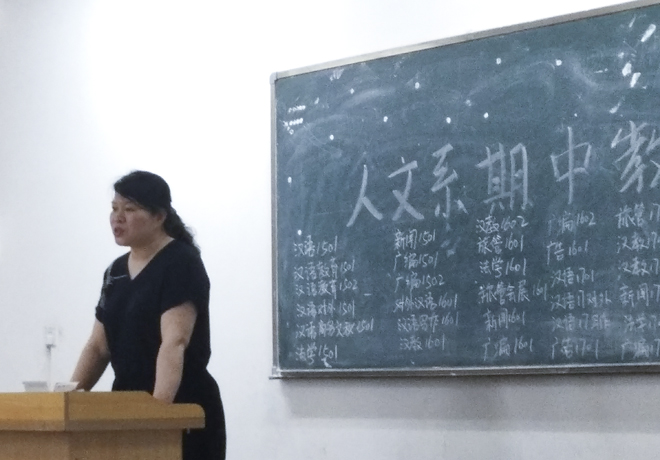 人文系期中教
汉语1501
汉语教育1501
汉语教育1502
汉语对外1501
法学1501
新闻1501
广编1501
广编1502
对外汉语1601
汉语写作1601
汉教1601
汉教1602
旅管1601
法学1601
旅管会展1601
新闻1601
广编1601
广编1602
广告1601
汉语1701
汉语1701对外
汉语1701写作
广告1701
旅管17
汉教17
汉教17
新闻17
法学17
广编17